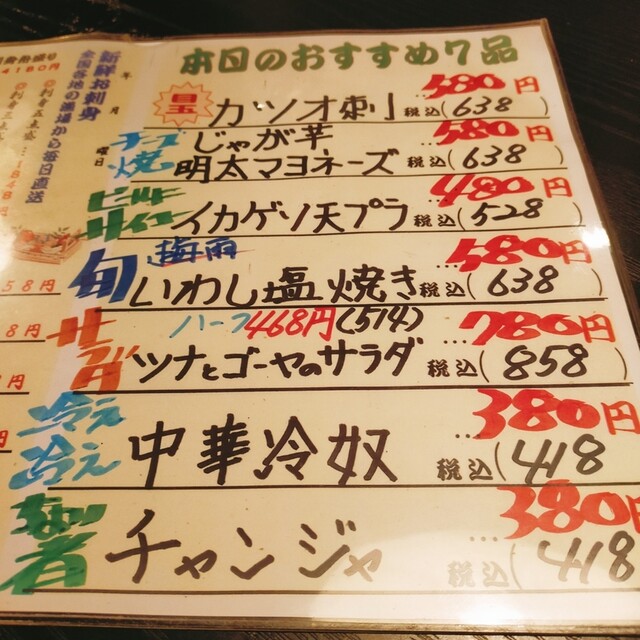 本日のおすすめ7品
目玉 カツオ刺 …580円
税込(638)
チーズ焼 じゃが芋
明太マヨネーズ …580円
税込(638)
ビールに イカゲソ天プラ …480円
税込(528)
旬 梅雨 いわし塩焼き …580円
税込(638)
ハーフ468円(514)
ツナとゴーヤのサラダ …780円
税込(858)
冷え冷え 中華冷奴 …380円
税込(418)
箸 チャンジャ …380円
税込(418)
新鮮お刺身
全国各地の漁場から毎日直送
年 月 曜日
4180円
…1848円
58円
8円
円
円